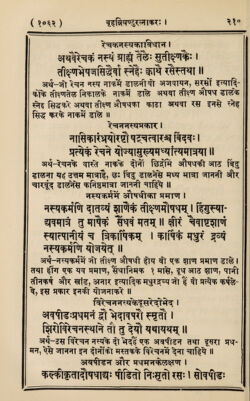 ( १०६२ ) बृहन्निघण्टुरत्नाकरः । २१०
रेचकनस्यकाविधान ।
अथवैरेचकं नस्यं ग्राह्यं तैलैः सुतीक्ष्णकैः ।
तीक्ष्णभेषजसिद्धैर्वा स्नेहैः क्वाथै रसैस्तथा ॥
अर्थ-जो रेचन नस्य नाकमें डालनी हो अजवायन, सरसों इत्यादि-
कोंके तीक्ष्णतेल निकालके नाकमें डाले अथवा तीक्ष्ण औषध डालके
स्नेह सिद्धकरे अथवा तीक्ष्ण औषधका काढा अथवा रस इनसे स्नेह
सिद्ध करके नाकमें डाले ॥
रेचननस्यप्रकार ।
नासिकारंध्रयोरष्टौ षट्चत्वारश्च बिंदवः ।
प्रत्येकं रेचने योज्यामुख्यमध्यांत्यमात्रया ॥
अर्थ-रेचनके वास्ते नाकके दोनों छिद्रोंमें औषधकी आठ बिंदु
डालना यह उत्तम मात्राहै, छः बिंदु डालनेसे मध्य मात्रा जाननी और
चारबूंद डालनेसे कनिष्ठमात्रा जाननी चाहिये ॥
नस्यकर्ममें औषधीका प्रमाण ।
नस्यकर्मणि दातव्यं शाणैकं तीक्ष्णमौषधम् । हिंगुस्या-
द्यवमात्रं तु माषैकं सैंधवं मतम् ॥ क्षीरं चैवाष्टशाणं
स्यात्पानीयं च त्रिकार्षिकम् । कार्षिकं मधुरं द्रव्यं
नस्यकर्मणि योजयेत् ॥
अर्थ-नस्यकर्ममें जो तीक्ष्ण औषधी होय वो एक शाण प्रमाण डाले ।
तथा हींग एक यव प्रमाण, सेंधानिमक १ मासे, दूध आठ शाण, पानी
तीनकर्ष और खांड, अनार इत्यादिक मधुरद्रव्य जो हैं वो प्रत्येक कर्षले-
वे, इस प्रकार इनकी योजनाकरे ॥
विरेचननस्यकेदूसरेदोभेद ।
अवपीडःप्रधमनं द्वौ भेदावपरौ स्मृतौ ।
शिरोविरेचनस्थाने तौ तु देयौ यथायथम् ॥
अर्थ-उस विरेचन नस्यके दो भेदहैं एक अवपीडन तथा दूसरा प्रध-
मन, ऐसे जानना इन दोनोंको मस्तकके विरेचनमें देना चाहिये ॥
अवपीडन और प्रधमनकेलक्षण ।
कल्कीकृतादौषधाद्यः पीडितो निःसृतो रसः । सोवपीडः